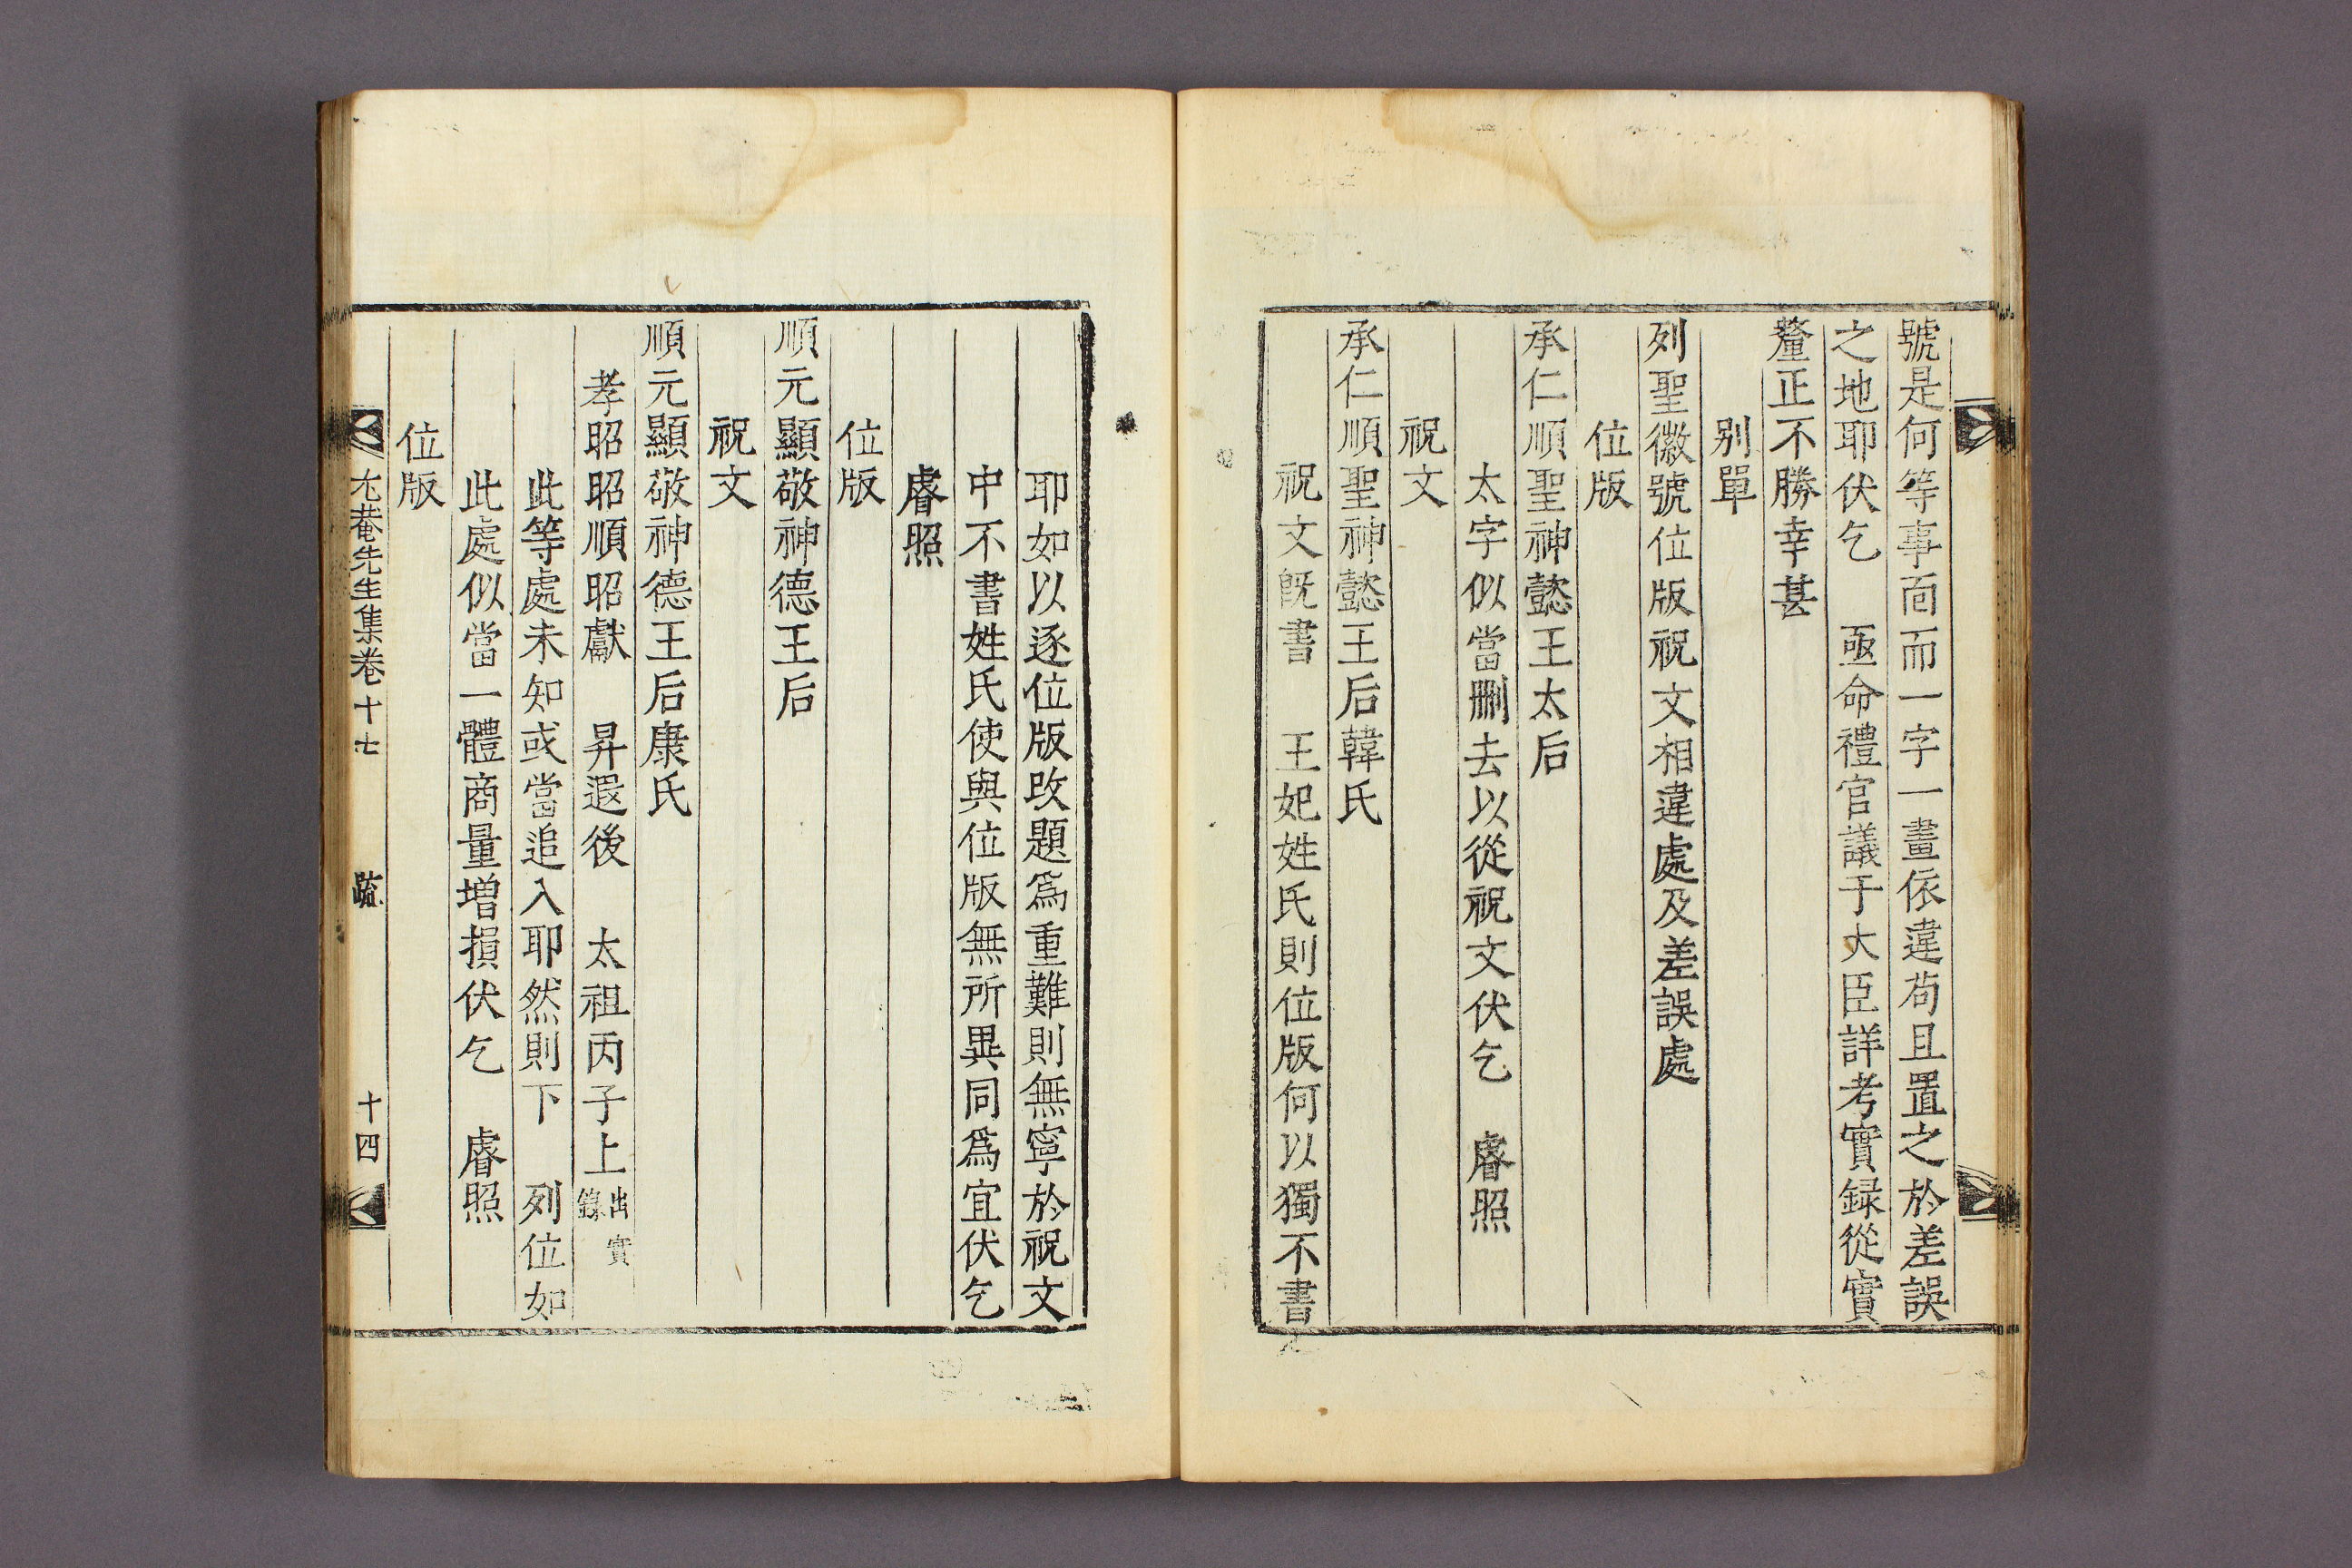 號是何等事而一字一畫依違苟且置之於差誤
之地耶伏乞　亟命禮官議于大臣詳考實録從實
釐正不勝幸甚
別單
列聖徽號位版祝文相違處及差誤處
位版
承仁順聖神懿王太后
太字似當刪去以從祝文伏乞　睿照
祝文
承仁順聖神懿王后韓氏
祝文旣書　王妃姓氏則位版何以獨不書
耶如以逐位版改題爲重難則無寧於祝文
中不書姓氏使與位版無所異同爲宜伏乞
睿照
位版
順元顯敬神德王后
祝文
順元顯敬神德王后康氏
孝昭昭順昭獻　昇遐後　太祖丙子上出實錄
此等處未知或當追入耶然則下　列位如
此處似當一體商量增損伏乞　睿照
位版
尤菴先生集卷十七　疏　十四